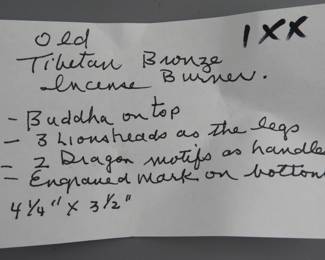 Old
1XX
Tibetan Bronze
Incense Burner.
- Buddha on top
- 3 Lionsheads as the legs
- 2 Dragon motifs as handles
- Engraved mark on bottom
4 1/4" x 3 1/2"